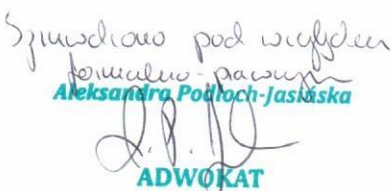 pod względem
formalno-prawnym
Aleksandra Podłoch-Jasińska
ADWOKAT